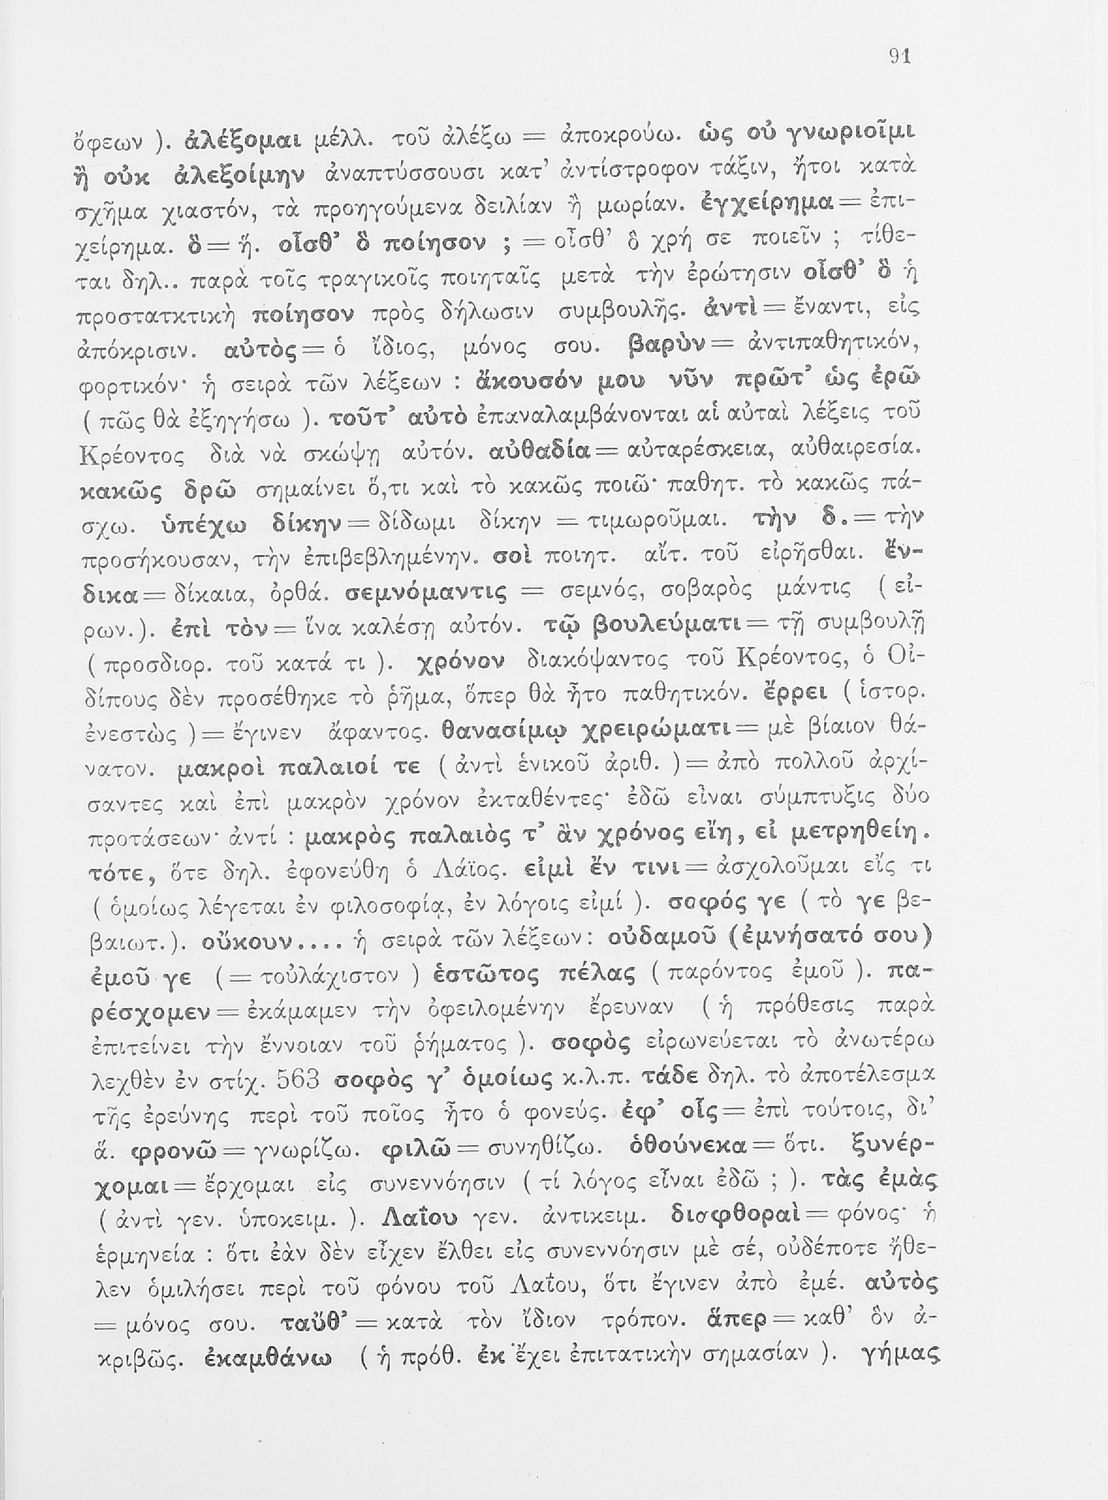 91
ὄφεων ). ἀλέξομαι μέλλ. τοῦ ἀλέξω = ἀποκρούω. ὡς οὐ γνωριοῖμι
ἢ οὐκ ἀλεξοίμην ἀναπτύσσουσι κατ’ ἀντίστροφον τάξιν, ἤτοι κατὰ
σχῆμα χιαστόν, τὰ προηγούμενα δειλίαν ἢ μωρίαν. ἐγχείρημα = ἐπι-
χείρημα. ὃ = ἥ. οἶσθ’ ὃ ποίησον ; = οἶσθ’ ὃ χρή σε ποιεῖν ; τίθε-
ται δηλ.. παρὰ τοῖς τραγικοῖς ποιηταῖς μετὰ τὴν ἐρώτησιν οἶσθ’ ὃ ἡ
προστατκτικὴ ποίησον πρὸς δήλωσιν συμβουλῆς. ἀντὶ = ἔναντι, εἰς
ἀπόκρισιν. αὐτὸς = ὁ ἴδιος, μόνος σου. βαρὺν = ἀντιπαθητικόν,
φορτικόν· ἡ σειρὰ τῶν λέξεων : ἄκουσόν μου νῦν πρῶτ’ ὡς ἐρῶ
( πῶς θὰ ἐξηγήσω ). τοῦτ’ αὐτὸ ἐπαναλαμβάνονται αἱ αὐταὶ λέξεις τοῦ
Κρέοντος διὰ νὰ σκώψῃ αὐτόν. αὐθαδία = αὐταρέσκεια, αὐθαιρεσία.
κακῶς δρῶ σημαίνει ὅ,τι καὶ τὸ κακῶς ποιῶ· παθητ. τὸ κακῶς πά-
σχω. ὑπέχω δίκην = δίδωμι δίκην = τιμωροῦμαι. τὴν δ. = τὴν
προσήκουσαν, τὴν ἐπιβεβλημένην. σοὶ ποιητ. αἴτ. τοῦ εἰρῆσθαι. ἔν-
δικα = δίκαια, ὀρθά. σεμνόμαντις = σεμνός, σοβαρὸς μάντις ( εἰ-
ρων.). ἐπὶ τὸν = ἵνα καλέσῃ αὐτόν. τῷ βουλεύματι = τῇ συμβουλῇ
( προσδιορ. τοῦ κατά τι ). χρόνον διακόψαντος τοῦ Κρέοντος, ὁ Οἰ-
δίπους δὲν προσέθηκε τὸ ῥῆμα, ὅπερ θὰ ἦτο παθητικόν. ἔρρει ( ἱστορ.
ἐνεστὼς ) = ἔγινεν ἄφαντος. θανασίμῳ χρειρώματι = μὲ βίαιον θά-
νατον. μακροὶ παλαιοί τε ( ἀντὶ ἑνικοῦ ἀριθ. ) = ἀπὸ πολλοῦ ἀρχί-
σαντες καὶ ἐπὶ μακρὸν χρόνον ἐκταθέντες· ἐδῶ εἶναι σύμπτυξις δύο
προτάσεων· ἀντί : μακρὸς παλαιὸς τ’ ἂν χρόνος εἴη, εἰ μετρηθείη.
τότε, ὅτε δηλ. ἐφονεύθη ὁ Λάϊος. εἰμὶ ἔν τινι = ἀσχολοῦμαι εἴς τι
( ὁμοίως λέγεται ἐν φιλοσοφίᾳ, ἐν λόγοις εἰμί ). σοφός γε ( τὸ γε βε-
βαιωτ.). οὔκουν.... ἡ σειρὰ τῶν λέξεων: οὐδαμοῦ (ἐμνήσατό σου)
ἐμοῦ γε ( = τοὐλάχιστον ) ἑστῶτος πέλας ( παρόντος ἐμοῦ ). πα-
ρέσχομεν = ἐκάμαμεν τὴν ὀφειλομένην ἔρευναν ( ἡ πρόθεσις παρὰ
ἐπιτείνει τὴν ἔννοιαν τοῦ ῥήματος ). σοφὸς εἰρωνεύεται τὸ ἀνωτέρω
λεχθὲν ἐν στίχ. 563 σοφὸς γ’ ὁμοίως κ.λ.π. τάδε δηλ. τὸ ἀποτέλεσμα
τῆς ἐρεύνης περὶ τοῦ ποῖος ἦτο ὁ φονεύς. ἐφ’ οἷς = ἐπὶ τούτοις, δι’
ἅ. φρονῶ = γνωρίζω. φιλῶ = συνηθίζω. ὁθούνεκα = ὅτι. ξυνέρ-
χομαι = ἔρχομαι εἰς συνεννόησιν ( τί λόγος εἶναι ἐδῶ ; ). τὰς ἐμὰς
( ἀντὶ γεν. ὑποκειμ. ). Λαΐου γεν. ἀντικειμ. διαφθοραὶ = φόνος· ἡ
ἑρμηνεία : ὅτι ἐὰν δὲν εἶχεν ἔλθει εἰς συνεννόησιν μὲ σέ, οὐδέποτε ἤθε-
λεν ὁμιλήσει περὶ τοῦ φόνου τοῦ Λαΐου, ὅτι ἔγινεν ἀπὸ ἐμέ. αὐτὸς
= μόνος σου. ταὔθ’ = κατὰ τὸν ἴδιον τρόπον. ἅπερ = καθ’ ὃν ἀ-
κριβῶς. ἐκαμθάνω ( ἡ πρόθ. ἐκ ἔχει ἐπιτατικὴν σημασίαν ). γήμας